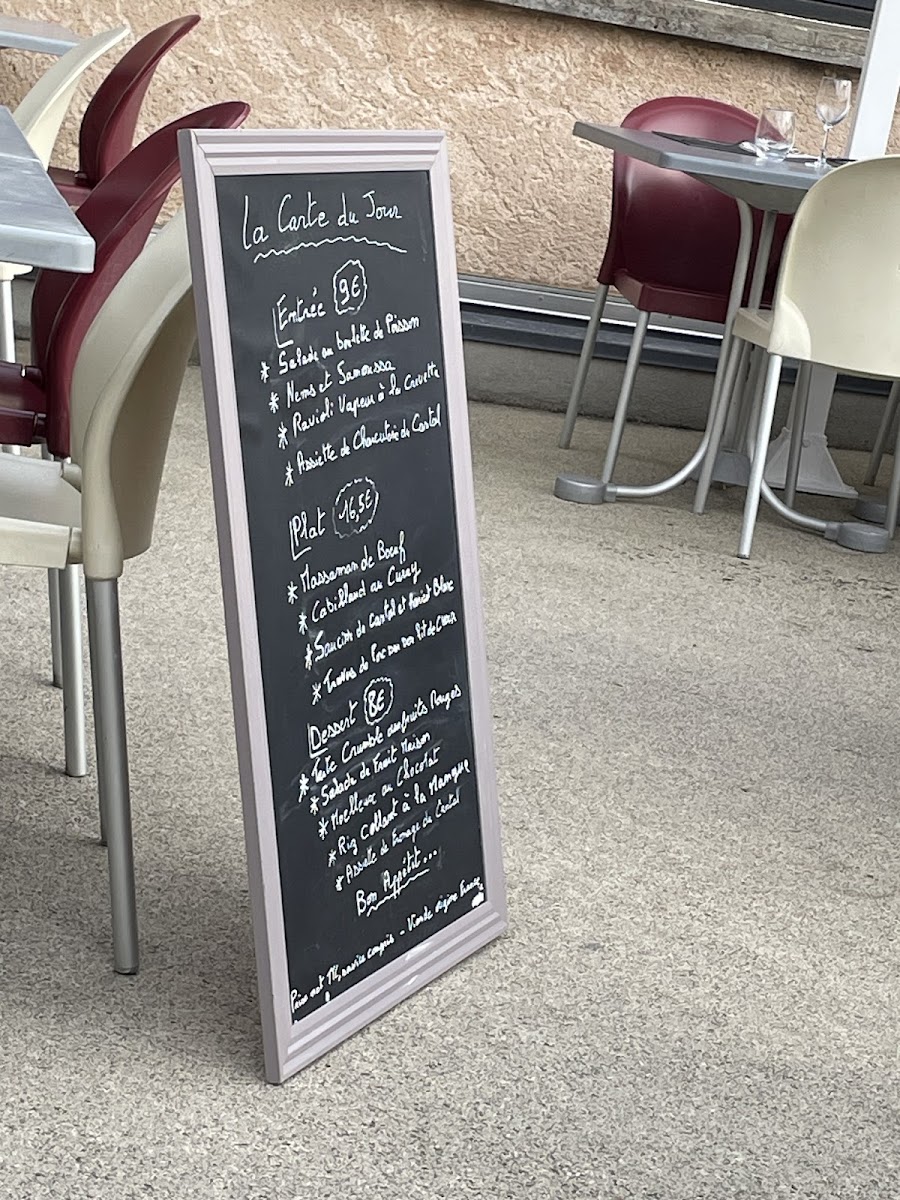 La Carte du Jour
Entrée 9€
* Salade au boulette de Poisson
* Nems et Samoussa
* Ravioli Vapeur à la Crevette
* Assiette de Charcuterie du Cantal
Plat 16,5€
* Massaman de Boeuf
* Cabillaud au Curry
* Saucisse de Cantal et Haricot Blanc
* Travers de Porc
Dessert 8€
* Tarte Crumble aux fruits Rouges
* Salade de Fruit Maison
* Moelleux au Chocolat
* Riz collant à la Mangue
* Assiette de Fromage du Cantal
Bon Appétit...
Prix net TTC, service compris - Viande origine France